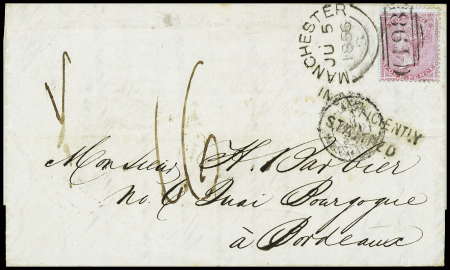 MANCHESTER
JU 5
1856
INSUFFICIENTLY
STAMPED
16
Monsieur H. Barbier
No. 6 Quai Bourgogne
à Bordeaux